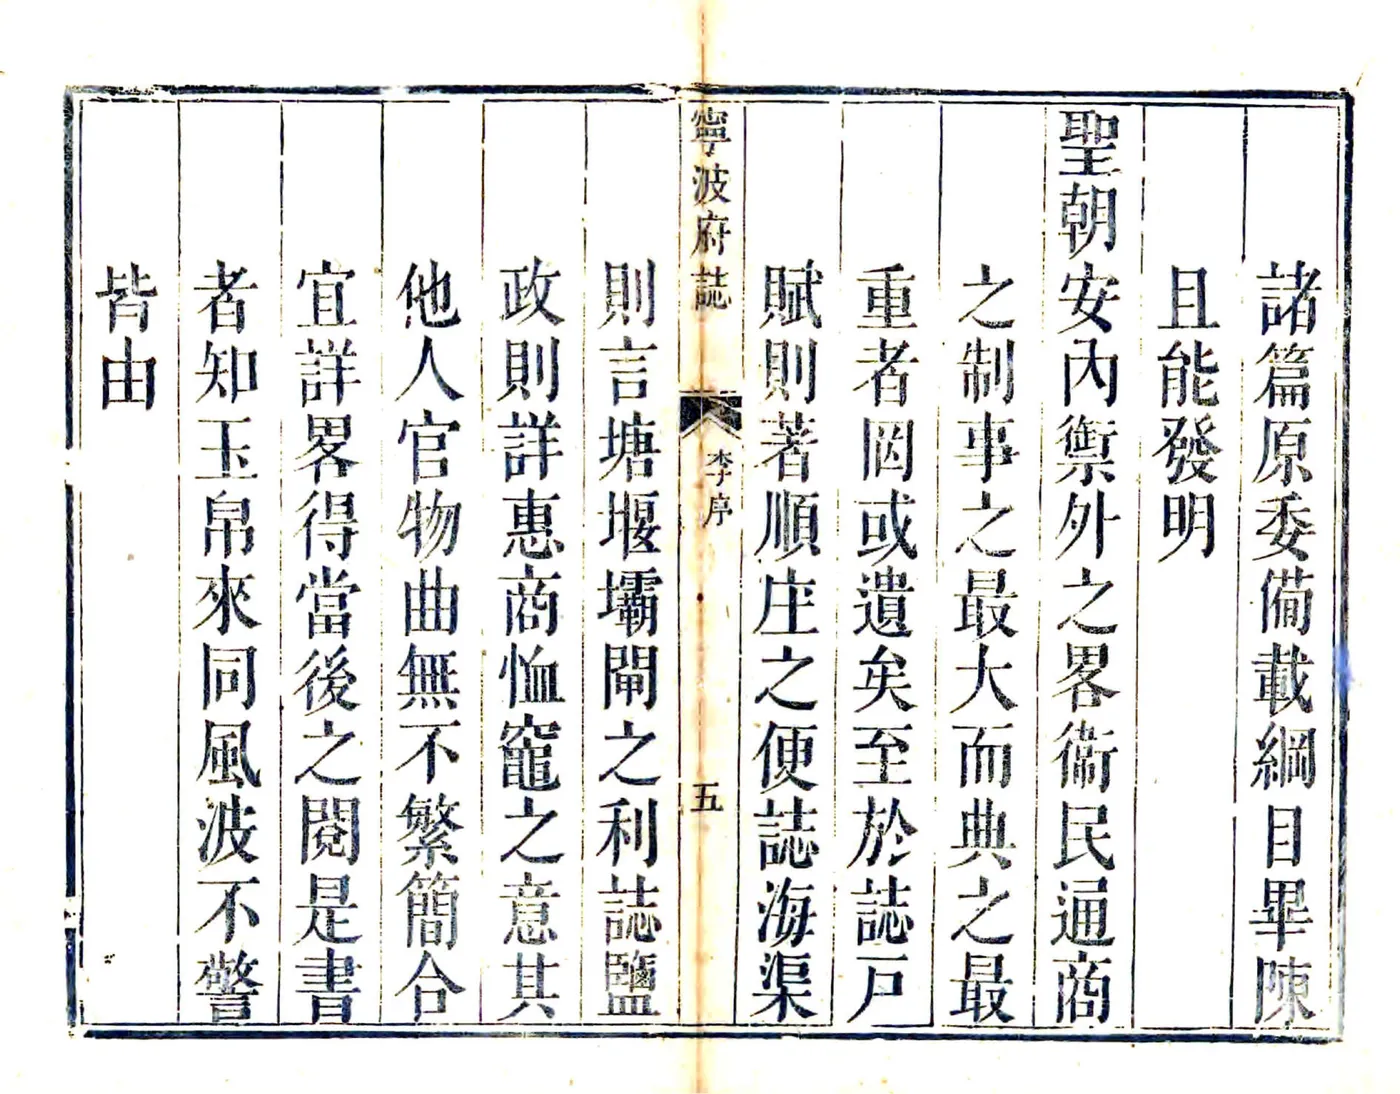 諸篇原委僃載綱目畢陳
且能發明
聖朝安內禦外之畧衞民通商
之制事之最大而典之最
重者罔或遺矣至於誌戸
賦則著順庄之便誌海渠
寧波府誌
李序
五
則言塘堰壩閘之利誌鹽
政則詳惠商恤竈之意其
他人官物曲無不繁簡合
宜詳畧得當後之閱是書
者知玉帛來同風波不警
皆由